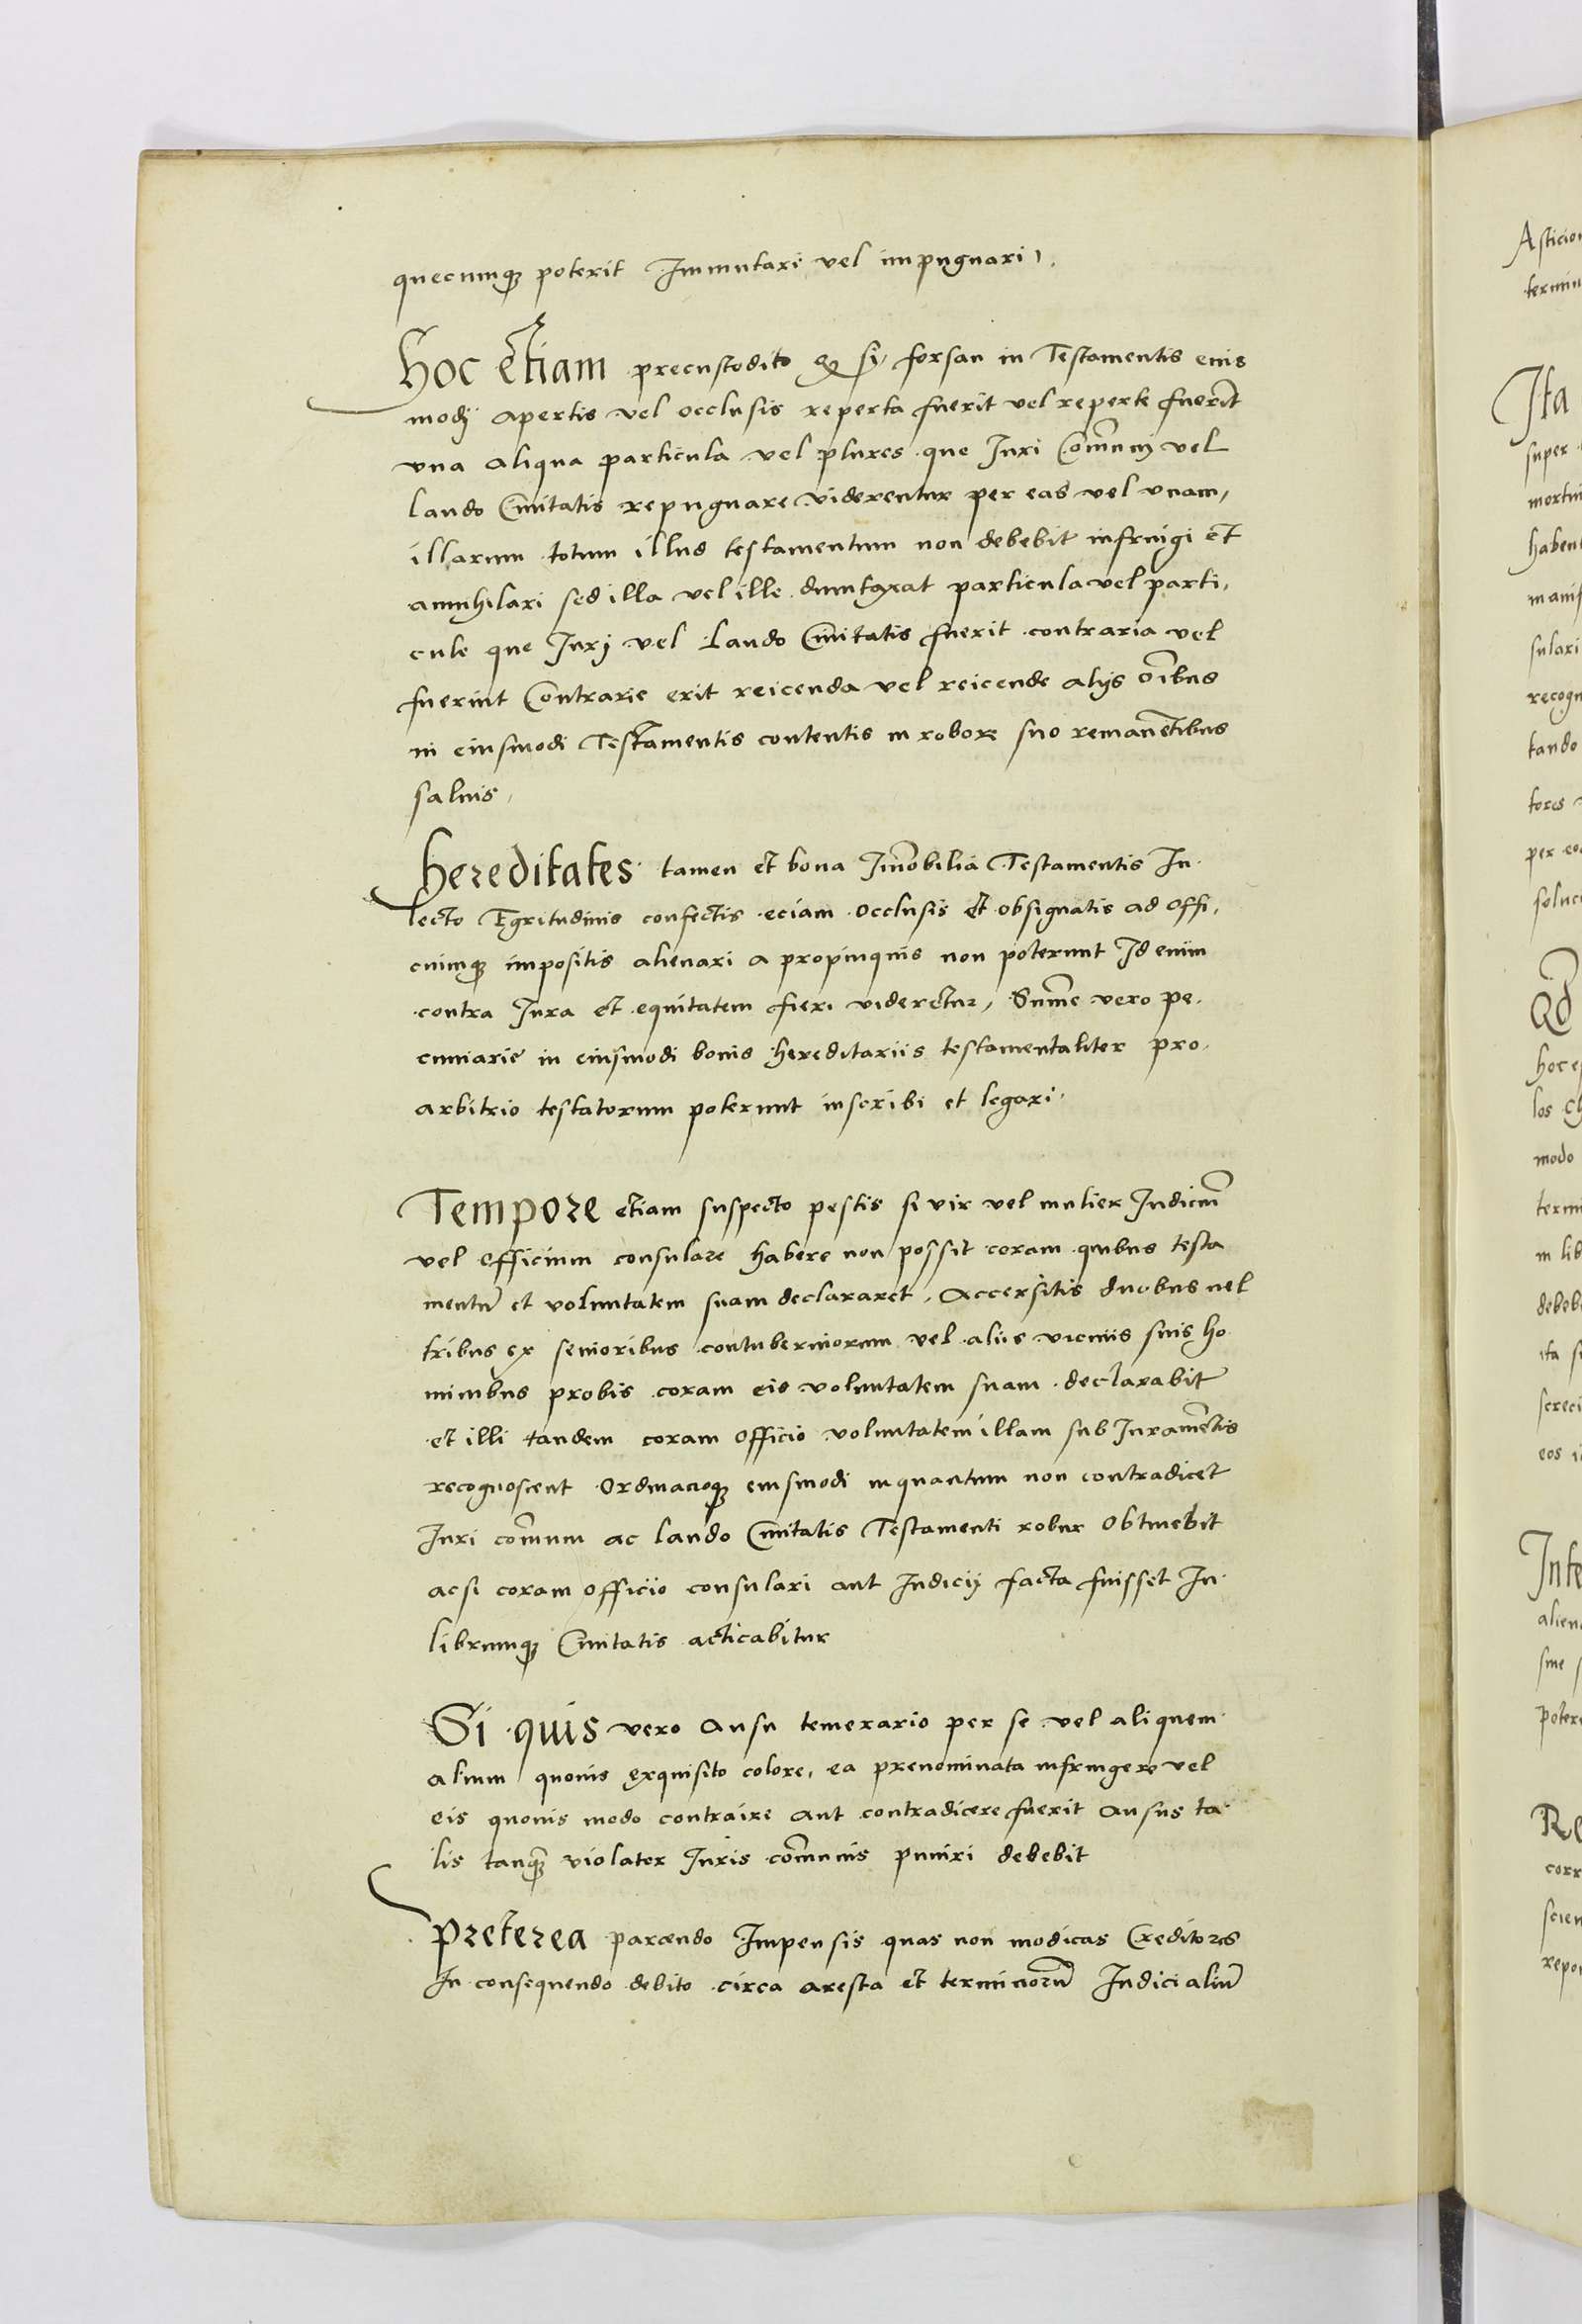 quecumqꝫ poterit Immutari vel impugnari.
Hoc etiam precustodito qꝫ si forsan in Testamentis eius
modj apertis vel occlusis reperta fuerit vel reperte fuerīt
vna aliqua particula vel plures que Iuri Com̄unj vel
laudo Ciuitatis repugnare viderentur per eas vel vnam,
illarum totum illud testamentum non debebit infringi et
annihilari sed illa vel ille dumtaxat particula vel parti,
cule que Iurj vel Laudo Ciuitatis fuerit contraria vel
fuerint Contrarie erit reicenda vel reicende alijs oībus
in eiusmodi Testamentis contentis in robore suo remanētibus
saluis,
Hereditates tamen et bona Im̄obilia Testamentis In
lecto Egritudinis confectis eciam occlusis et obsignatis ad offi,
ciumqꝫ impositis alienari a propinquis non poterunt Id enim
contra Iura et equitatem fieri videretur, Sum̄e vero pe
cuniarie in eiusmodi bonis hereditariis testamentaliter pro
arbitrio testatorum poterunt inscribi et legari.
Tempore etiam suspecto pestis si vir vel mulier Iudiciū
vel officium consulare habere non possit coram quibus testa
mentū et voluntatem suam declararet, Accersitis duobus vel
tribus ex senioribus contuberniorum vel aliis vicinis suis ho
minibus probis coram eis voluntatem suam declarabit
et illi tandem coram officio voluntatem illam sub Iuramētis
recognoscent Ordinacioqꝫ eiusmodi inquantum non contradicet
Iuri com̄uni ac laudo Ciuitatis Testamenti robur obtinebit
acsi coram officio consulari aut Iudicij facta fuisset In
librumqꝫ Ciuitatis acticabitur
Si quis vero ausu temerario per se vel aliquem
alium quouis exquisito colore, ea prenominata infringere vel
eis quouis modo contraire aut contradicere fuerit ausus ta
lis tanq̄ violator Iuris com̄unis puniri debebit
Preterea parcendo Impensis quas non modicas Creditores
In consequendo debito circa aresta et terminorū Iudicialiū
Ita
super
modo
tando
recogn
per
Re